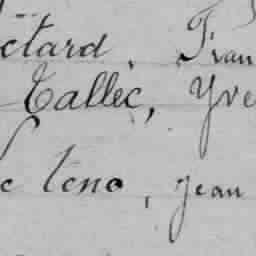 ctard, Fran
Tallec, Yve
c Cono, Jean